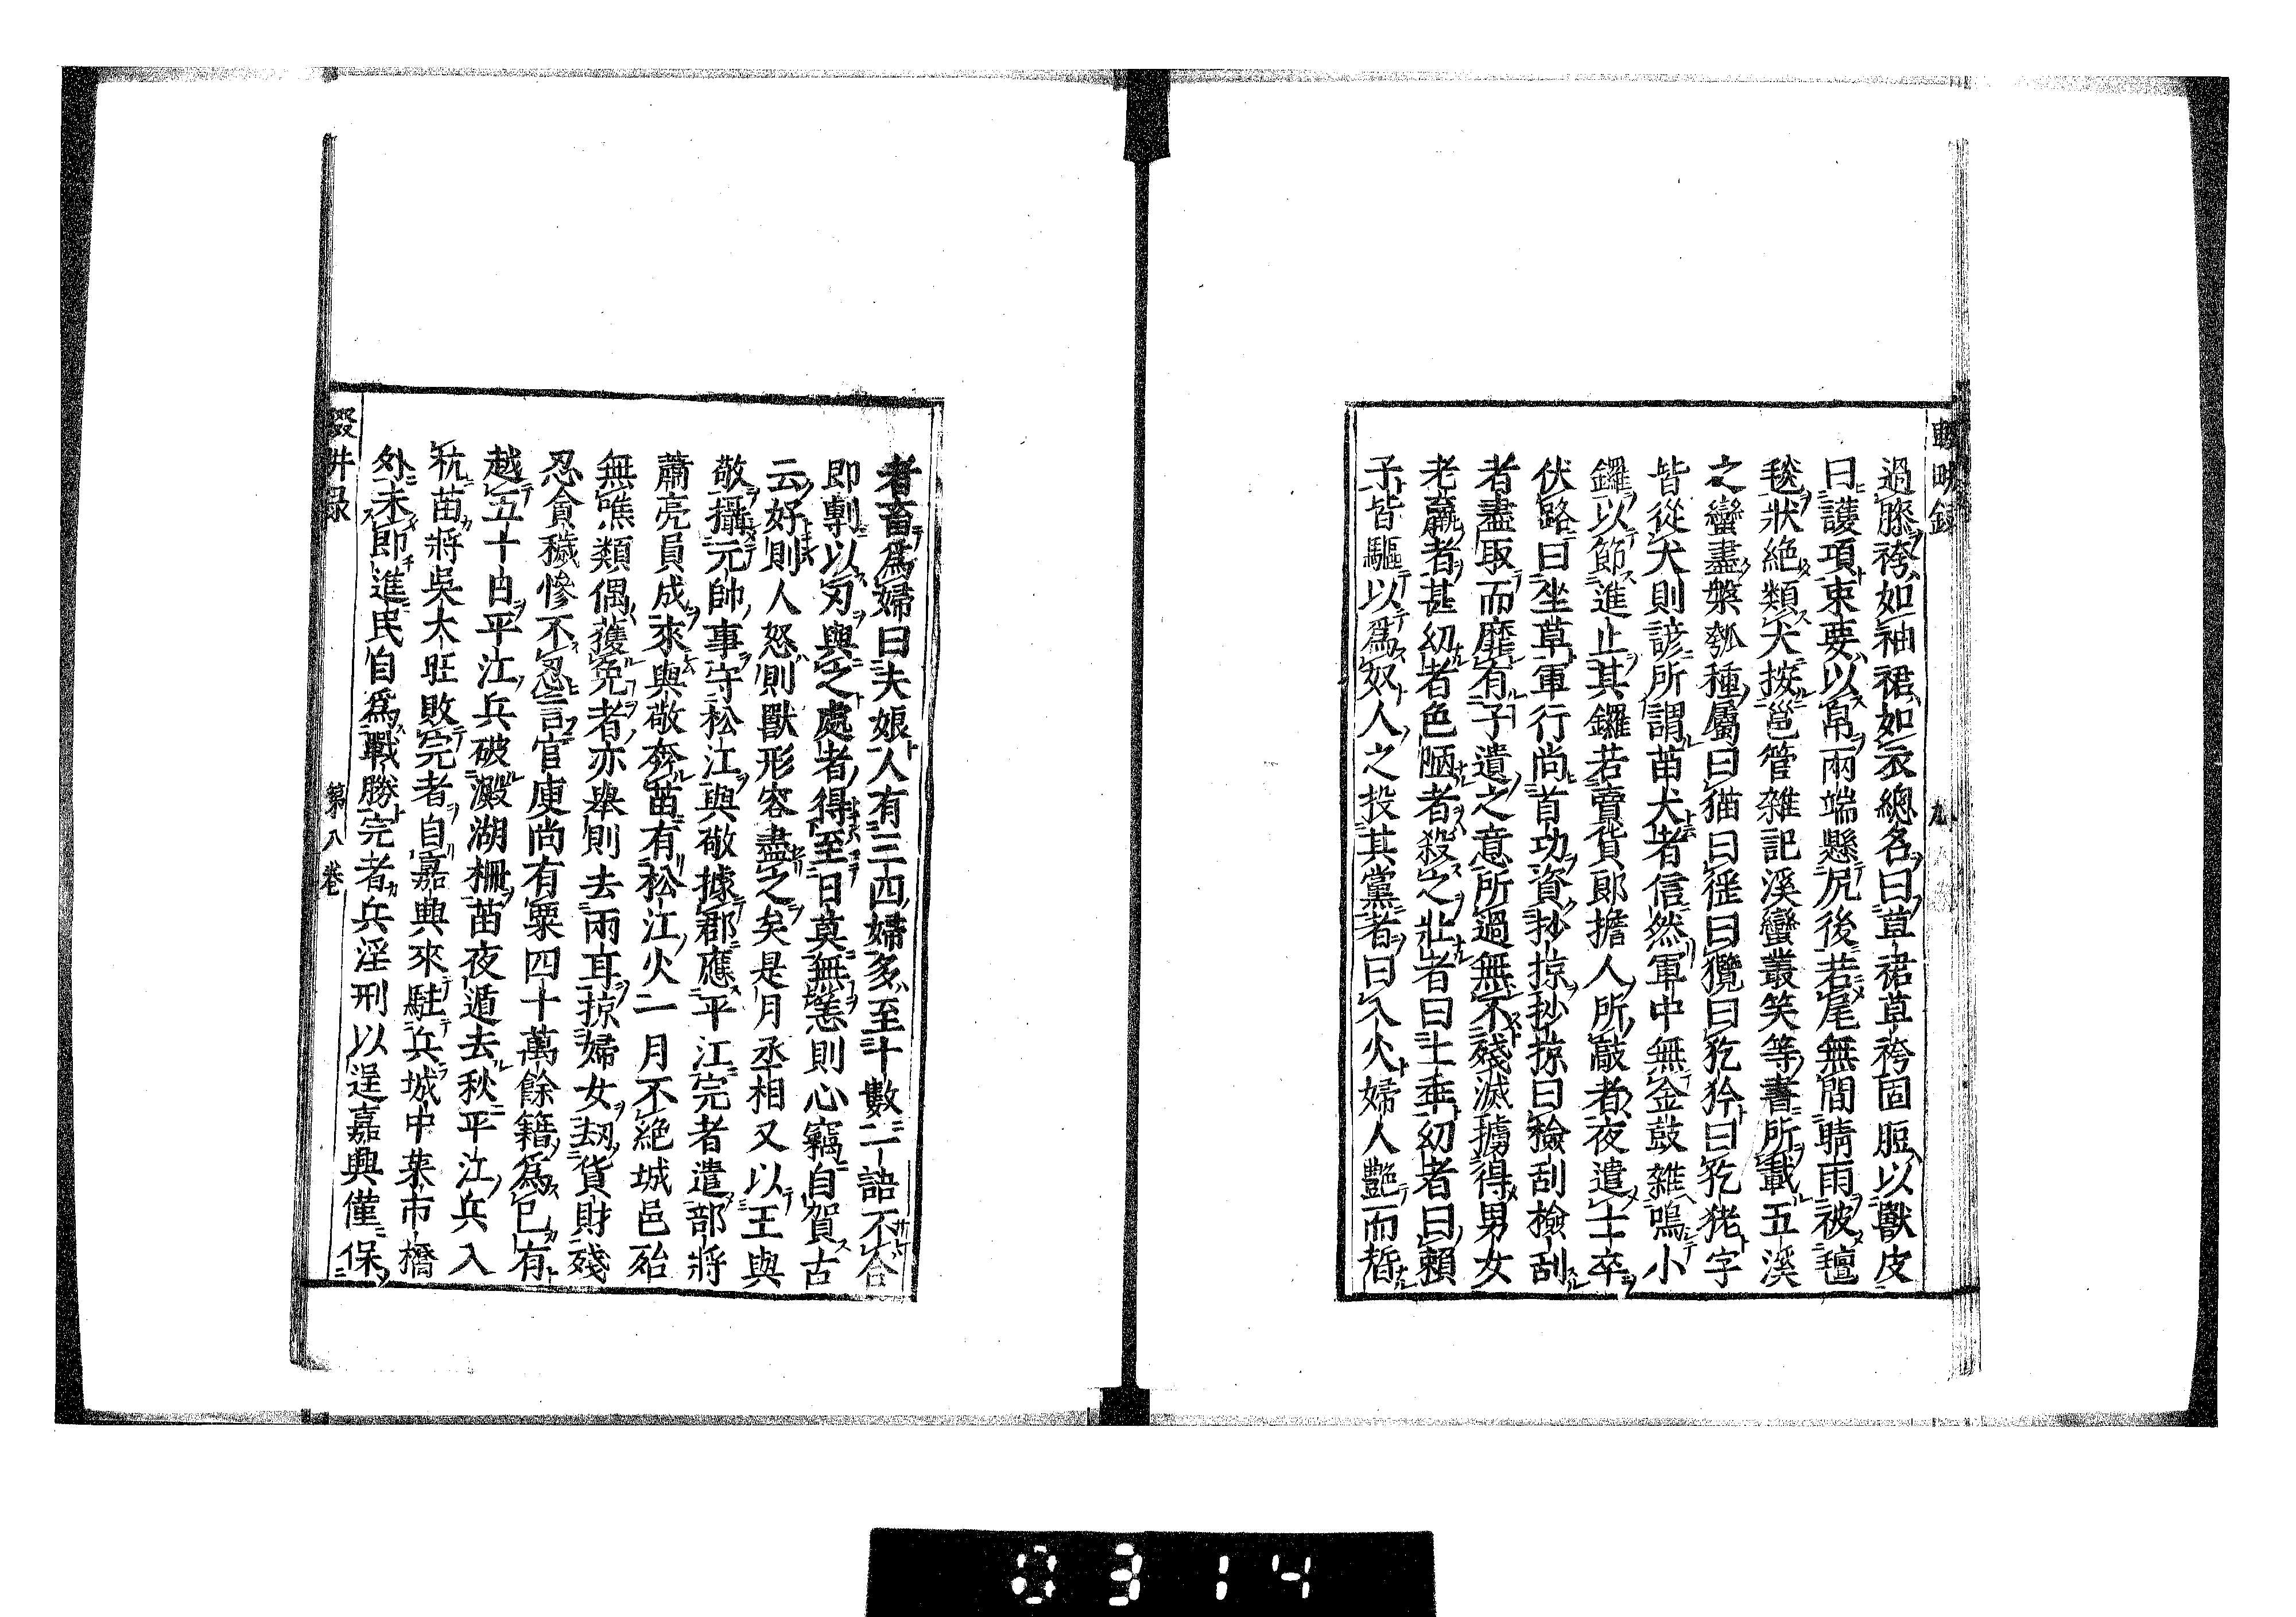 過膝袴如袖裙如衣總名曰草裙草袴固脰以獸皮
曰護項束要以帛兩端懸尻後若尾無間晴雨被氊
毯狀絕類犬按邕管雜記溪蠻叢笑等書所載五溪
之蠻盡槃瓠種屬曰猫曰猺曰獠曰犵狑曰犵狫字
皆從犬則諺所謂苗犬者信然軍中無金鼓雜鳴小
鑼以節進止其鑼若賣貨郎擔人所敲者夜遣士卒
伏路曰坐草軍行尚首功資抄掠抄掠曰檢刮檢刮
者盡取而靡有孑遺之意所過無不殘滅擄得男女
老羸者甚幼者色陋者殺之壯者曰土乖幼者曰賴
子皆驅以爲奴人之投其黨者曰入火婦人艷而晳
者畜爲婦曰夫娘人有三四婦多至十數二語不合
即剸以刃與之處者得至日莫無恙則心竊自賀古
云好則人怒則獸形容盡之矣是月丞相又以王與
敬攝元帥事守松江與敬據郡應平江完者遣部將
蕭亮員成來與敬奔苗有松江火一月不絕城邑殆
無噍類偶獲免者亦舉則去兩耳掠婦女刼貨財殘
忍貪穢慘不忍言官庾尚有粟四十萬餘籍爲已有
越五十日平江兵破澱湖柵苗夜遁去秋平江兵入
杭苗將吳大旺敗完者自嘉興來駐兵城中菜市橋
外未即進民自爲戰勝完者兵淫刑以逞嘉興僅保
輟畊錄
第八卷
0314